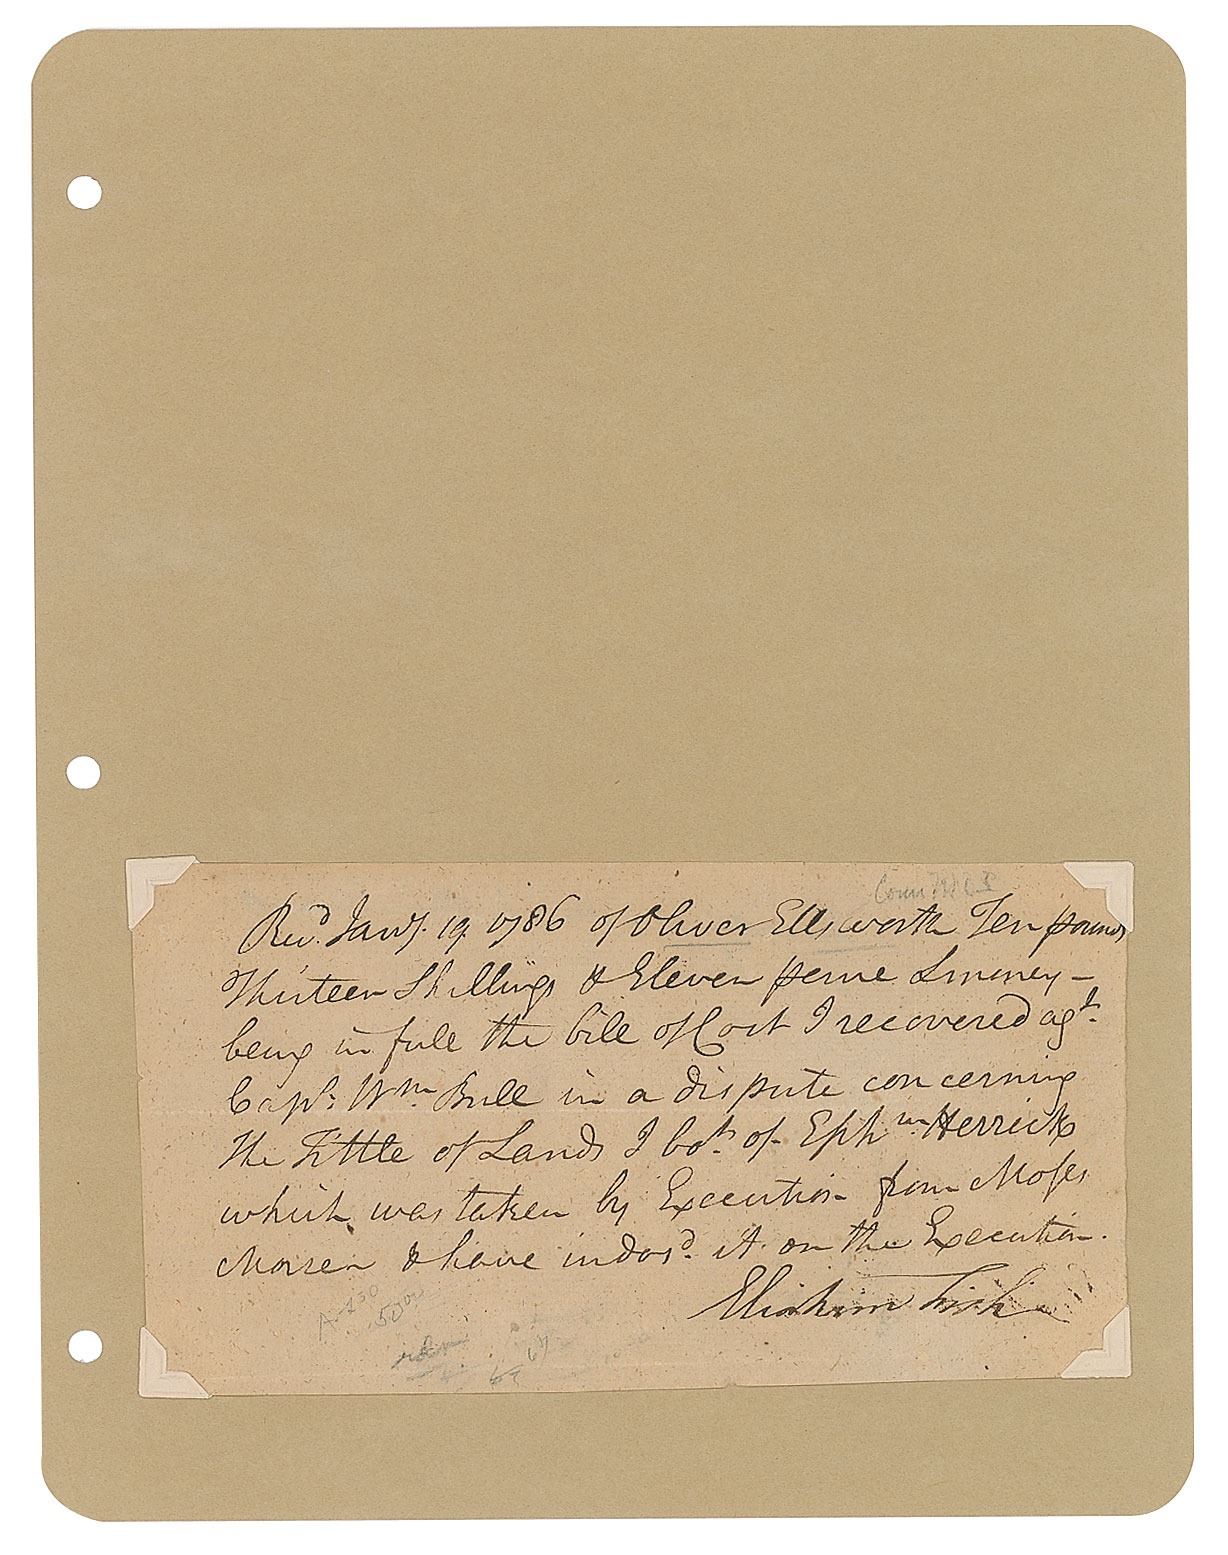 Recd. Jany. 19. 1786 of Oliver Ellsworth Ten pounds
Thirteen Shillings & Eleven pence Lmoney –
being in full the bill of Cost I recovered agt.
Capt. Wm. Bull in a dispute concerning
the Tittle of Lands I bot. of Ephm Herrick
which was taken by Execution from Moses
& have indosd. it on the Execution.
Eliakim Fish